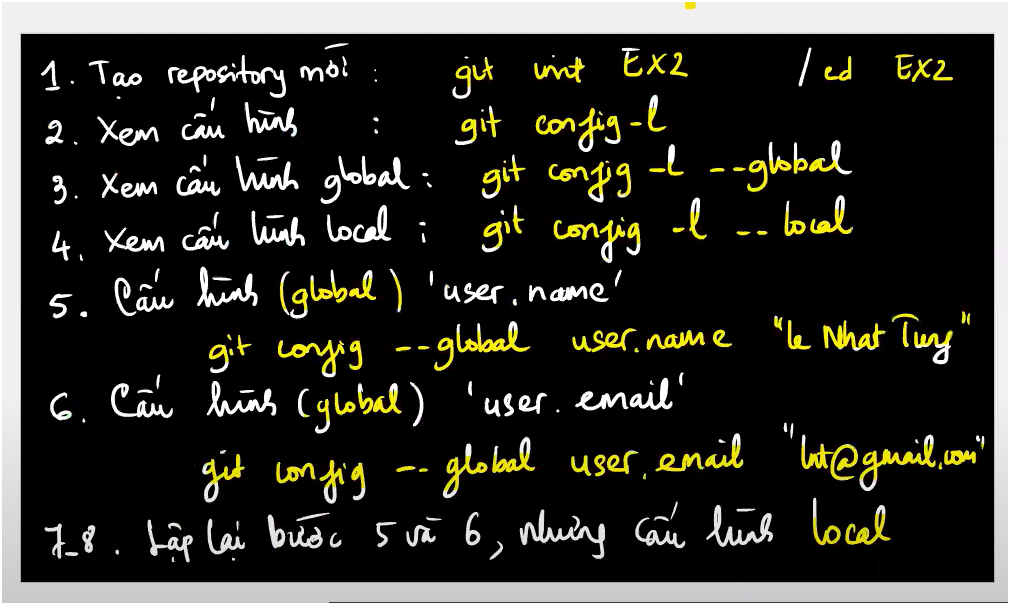 1. Tạo repository mới : git init EX2 / cd EX2
2. Xem cấu hình : git config -l
3. Xem cấu hình global : git config -l --global
4. Xem cấu hình local : git config -l --local
5. Cấu hình (global) 'user.name'
git config --global user.name "Le Nhat Tung"
6. Cấu hình (global) 'user.email'
git config --global user.email "lnt@gmail.com"
7_8. Lặp lại bước 5 và 6, nhưng cấu hình local